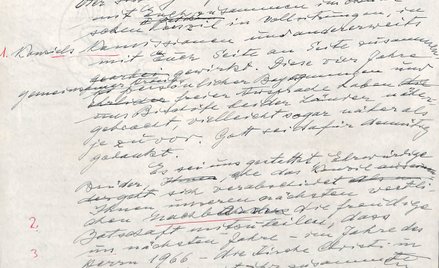 mit Euch zusammen in den
Konzil in Vollsitzungen, in
1. Konzils Kommissionen und anderweits
mit Euer Seite an Seite zusammen
gewirkt. Diese vier Jahre
gemeinsamer persönlicher Begegnungen und
freier Aussprache haben
uns Bischöfe beider Länder näher
gebracht, vielleicht sogar näher als
je zuvor. Gott sei dafür demütig
gedankt.
Es sei uns gestattet Ehrwürdige
Brüder, ehe das Konzil
sich verabschiedet
Ihnen unseren nächsten westli-
chen Nachbarn die freudige
2. Botschaft mitzuteilen, dass
im nächsten Jahre - im Jahre des
3. Herrn 1966 - die Kirche Christi in